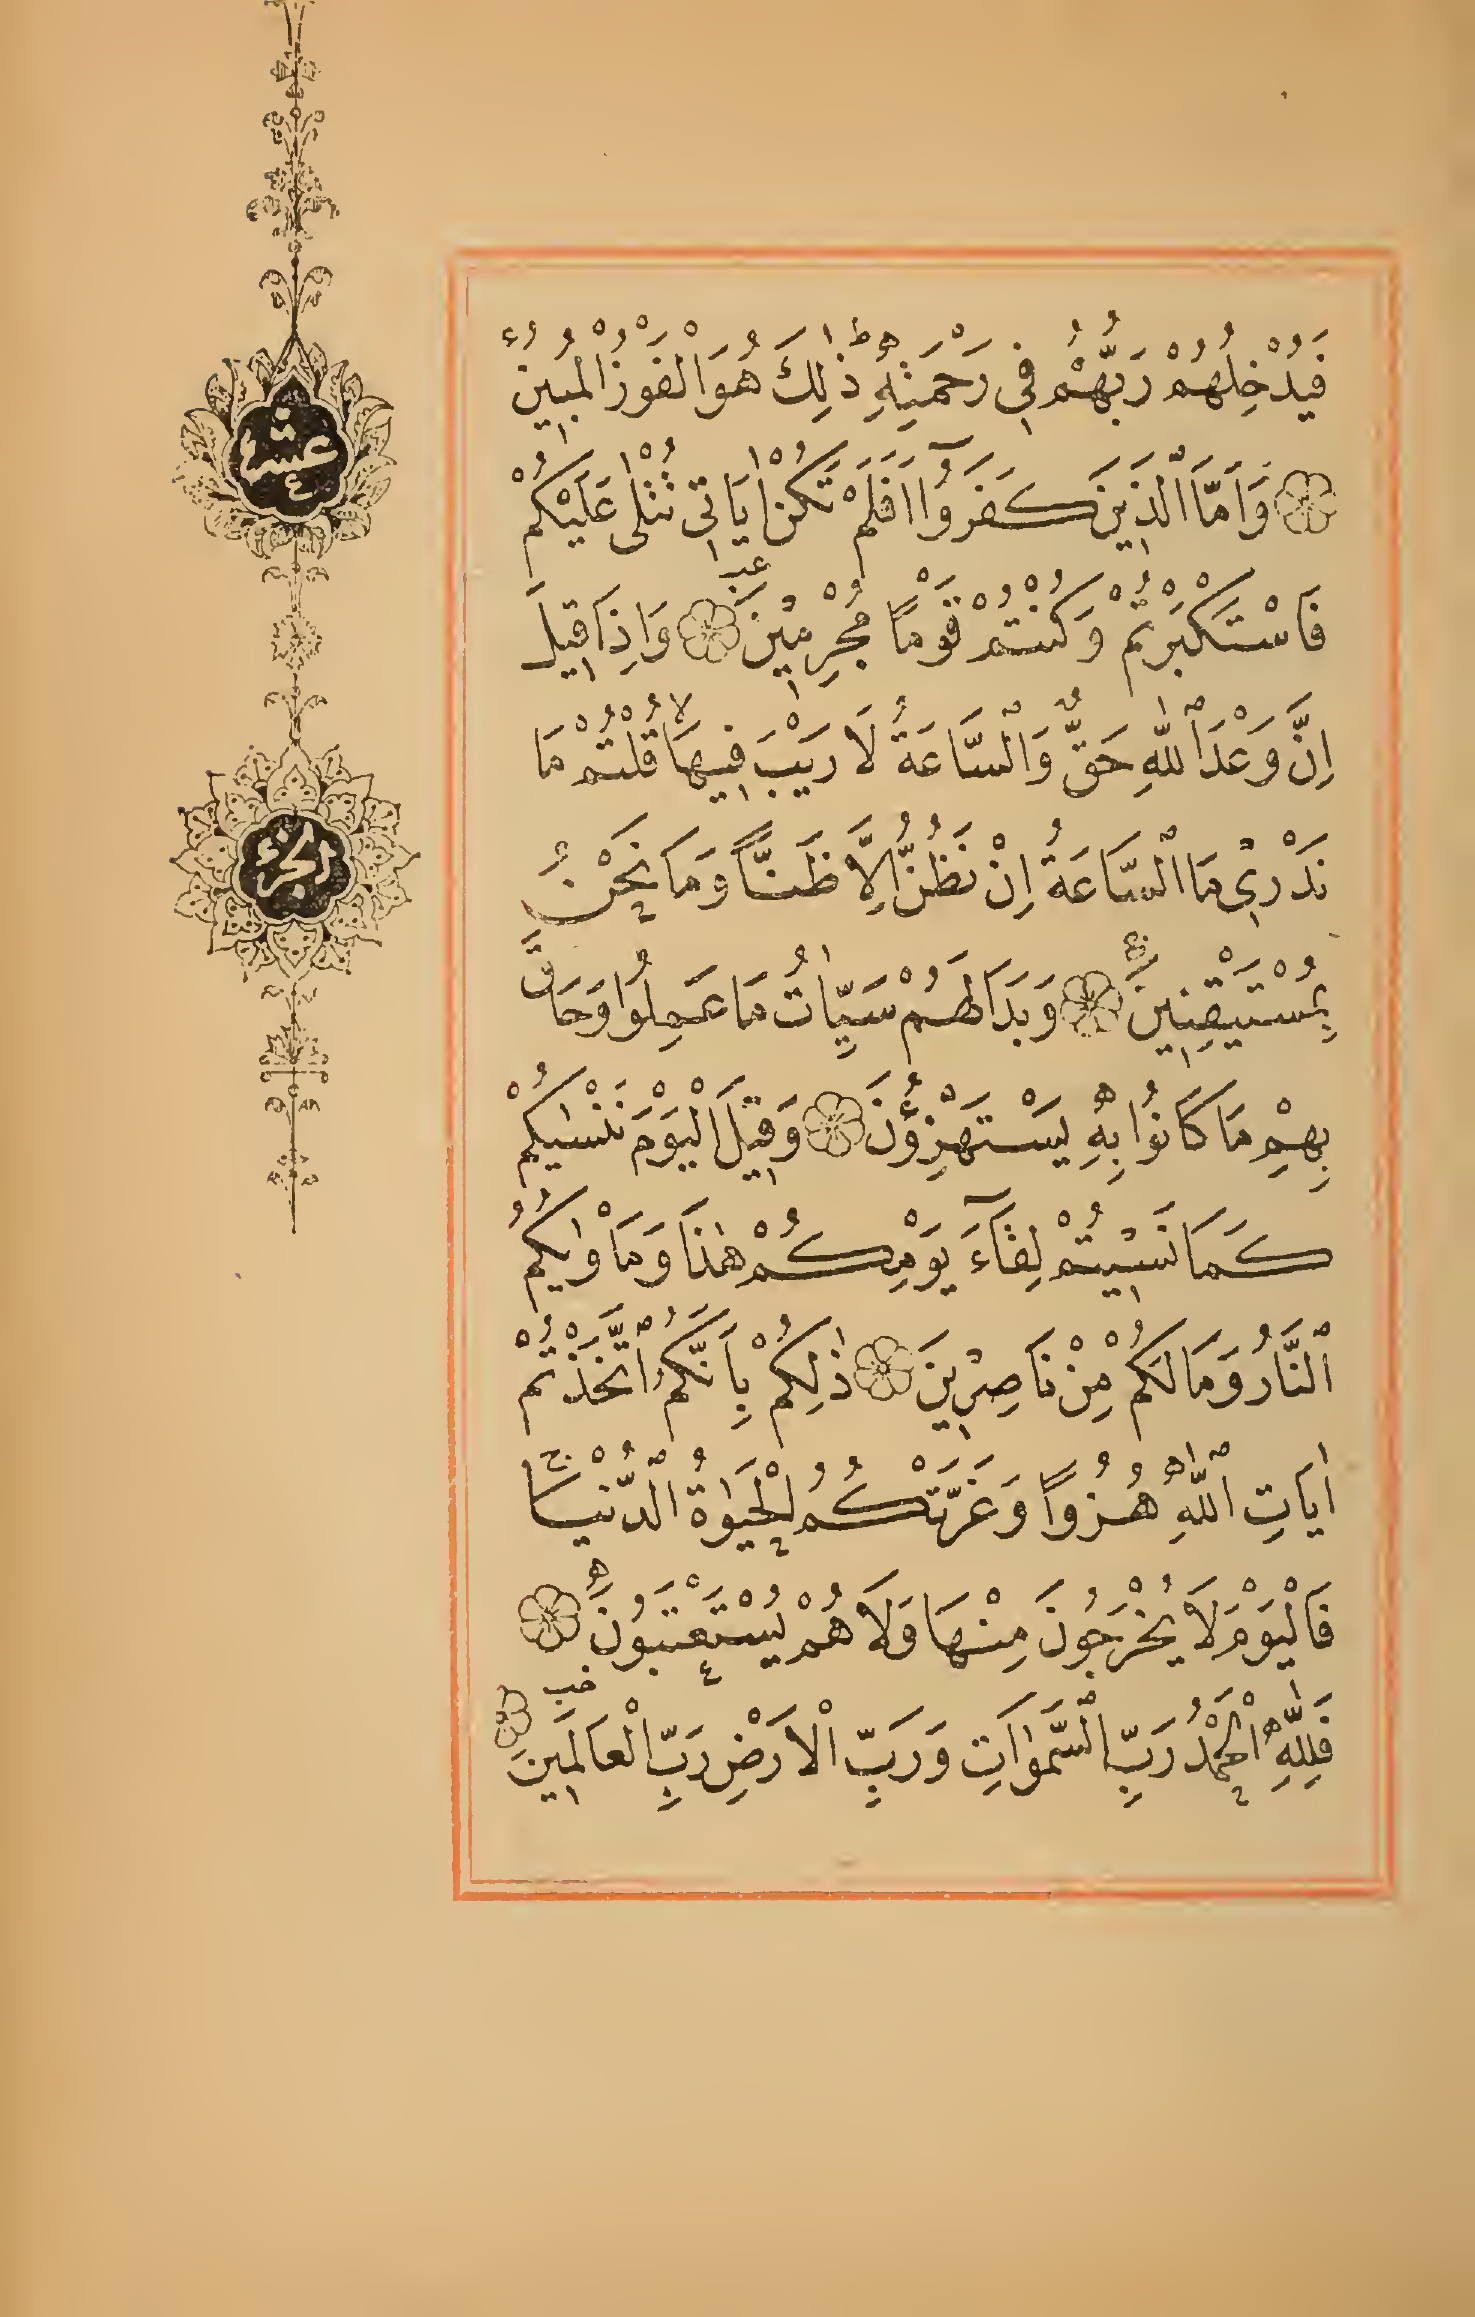 فَيُدْخِلُهُمْ رَبُّهُمْ فِي رَحْمَتِهِ ط ذٰلِكَ هُوَ الْفَوْزُ الْمُبِينُ
وَاَمَّا الَّذِينَ كَفَرُوٓا اَفَلَمْ تَكُنْ اٰيَاتِي تُتْلٰى عَلَيْكُمْ
فَاسْتَكْبَرْتُمْ وَكُنْتُمْ قَوْمًا مُجْرِمِينَ عب وَاِذَا قِيلَ
اِنَّ وَعْدَ اللّٰهِ حَقٌّ وَالسَّاعَةُ لَا رَيْبَ فِيهَا لا قُلْتُمْ مَا
نَدْرِي مَا السَّاعَةُ اِنْ نَظُنُّ اِلَّا ظَنًّا وَمَا نَحْنُ
بِمُسْتَيْقِنِينَ وَبَدَا لَهُمْ سَيِّاٰتُ مَا عَمِلُوا وَحَاقَ
بِهِمْ مَا كَانُوا بِهِ يَسْتَهْزِؤُنَ وَقِيلَ الْيَوْمَ نَنْسٰيكُمْ
كَمَا نَسِيتُمْ لِقَآءَ يَوْمِكُمْ هٰذَا وَمَاْوٰيكُمُ
النَّارُ وَمَا لَكُمْ مِنْ نَاصِرِينَ ذٰلِكُمْ بِاَنَّكُمُ اتَّخَذْتُمْ
اٰيَاتِ اللّٰهِ هُزُوًا وَغَرَّتْكُمُ الْحَيٰوةُ الدُّنْيَا ج
فَالْيَوْمَ لَا يُخْرَجُونَ مِنْهَا وَلَا هُمْ يُسْتَعْتَبُونَ ه
خب
فَلِلّٰهِ الْحَمْدُ رَبِّ السَّمٰوَاتِ وَرَبِّ الْاَرْضِ رَبِّ الْعَالَمِينَ
عشر
الجزء